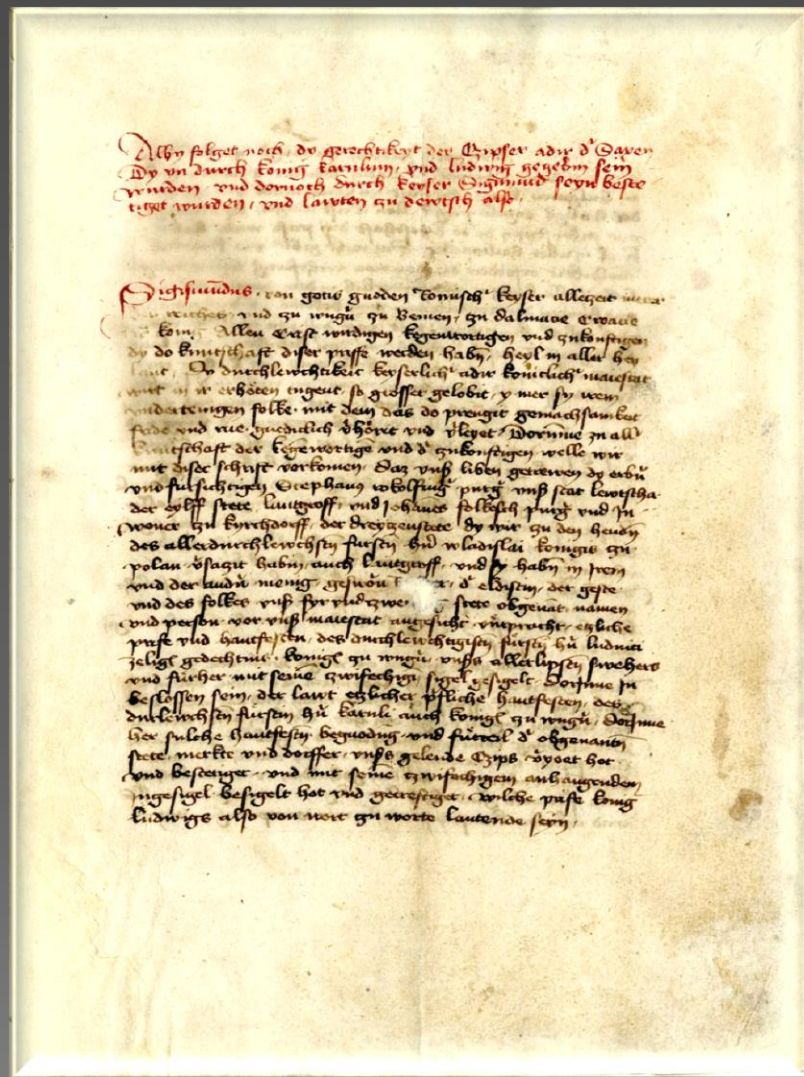 Alhy folget noch dy gerechtikeyt der Czipser adir d' Saxen
Dy yn durch konig karulum, vnd ludwig gegebin sein
wurden vnd dornoch durch keyser Sigimund seyn beste
tiget wurden, vnd lawten zu dewtsch also.
Sigismundus von gotis gnoden Romisch' keyser allezeit
vnd zu vngn zu Bemen, zu dalmacie Croacie
konig Allen Crist wirdigen kegenwortigen vnd zukonftigen
dy do kuntschaft diser priffe werden habn, heyl in allir
Dy durchlewchtikeit keyserlich' adir koniclich' maiestat
wirt in ir erhoten tugent, so grosser gelobit, y mer sy irem
vndertenigen folke mit dem das do prengit gemachsamket
frede vnd rue gnediclich vnd Dorumme zu all'
kuntschaft der kegewortige vnd d' zukonftigen welle wir
mit diser schrift vorkomen, Daz vnß liben getrewen dy erbn
vnd fursichtigen Stephanus purg' vnß stat lewtscha
der eylff stete, lantgroff, vnd Johannes purg' vnd in
woner zu kyrchdorff, der dreyzenstete dy wir zu den henden
des allerdurchlewchstn furstn hn wladislai konigis zu
polan vsaczt habn, auch lantgroff, vnd habn in irem
vnd der andn menig gesworn d' eldistin, der geste
vnd des folkes vnß fyr vnd zwe stete obgenat, namen
vnd person vor vnß maiestat angesicht etzliche
prife vnd hantfesten, des durchlewchtigistn furstn hn ludwici
zeligs gedechtnis konigs zu vngn, vnßs allerlipstn swehers
vnd furher mit seine zwifechign sigel gesigelt Dorinne in
beslossen sein, der lawt etzlicher hantfesten, des
durlewchstn furstn hn karuli auch konigs zu vngn, Dorinne
her sulche hantfestn begnodng vnd d' obgenantn
stete, merkte vnd dorffer, vnßs gelende Czips hot
vnd bestetiget, vnd mit seine zwifachigem anhangenden
ingesigel besigelt hot vnd gefestiget, wilche prife konig
ludwigs also von wort zu worte lautende seyn,